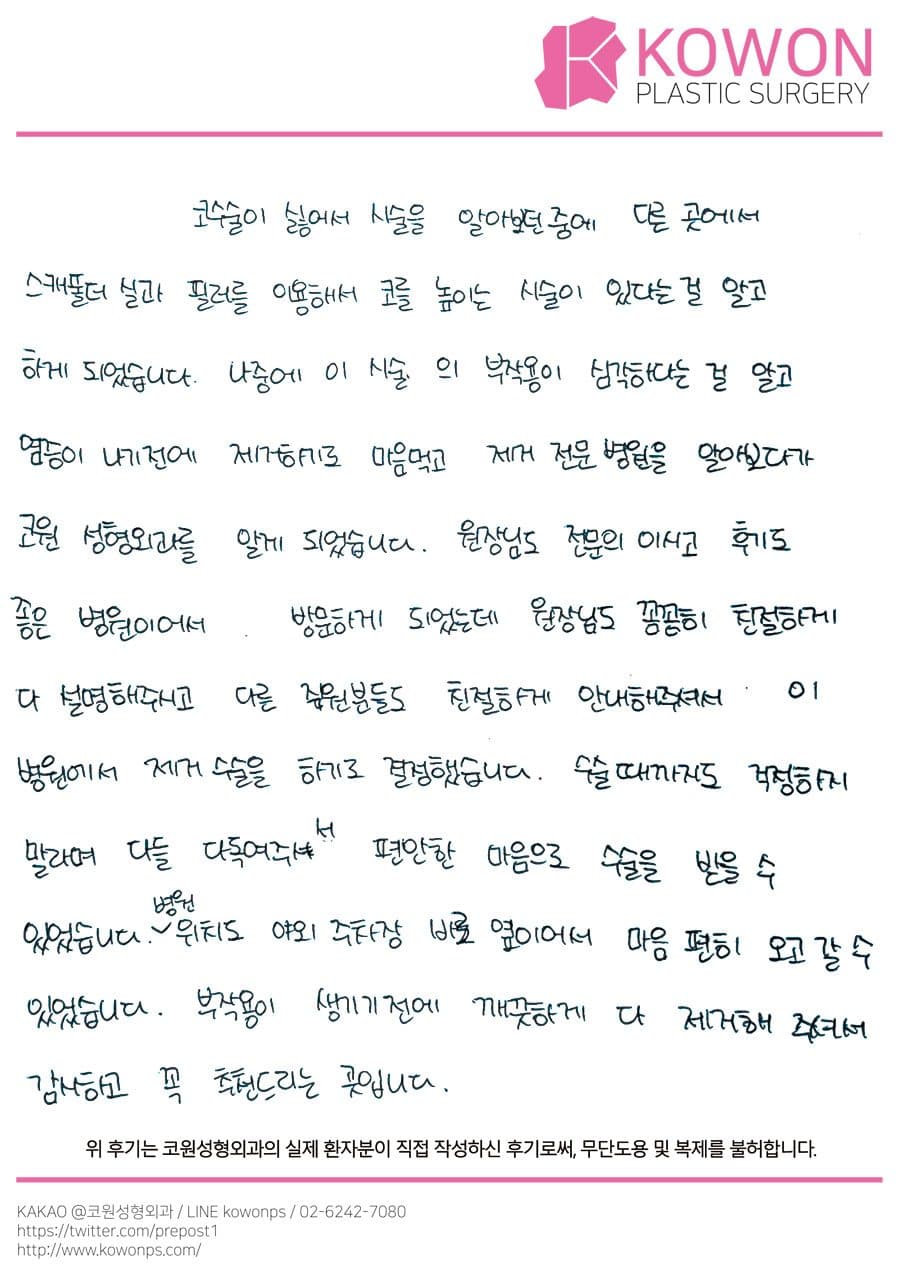 KOWON
PLASTIC SURGERY
코수술이 싫어서 시술을 알아보던 중에 다른 곳에서
스캐폴더 실과 필러를 이용해서 코를 높이는 시술이 있다는 걸 알고
하게 되었습니다. 나중에 이 시술 의 부작용이 심각하다는 걸 알고
염증이 나기전에 제거하기로 마음먹고 제거 전문 병원을 알아보다가
코원 성형외과를 알게 되었습니다. 원장님도 전문의 이시고 후기도
좋은 병원이어서 방문하게 되었는데 원장님도 꼼꼼히 친절하게
다 설명해주시고 다른 직원분들도 친절하게 안내해주셔서 이
병원에서 제거 수술을 하기로 결정했습니다. 수술때까지도 걱정하지
말라며 다들 다독여주셔서 편안한 마음으로 수술을 받을 수
있었습니다. 병원 위치도 야외 주차장 바로 옆이어서 마음 편히 오고 갈 수
있었습니다. 부작용이 생기기전에 깨끗하게 다 제거해 주셔서
감사하고 꼭 추천드리는 곳입니다.
위 후기는 코원성형외과의 실제 환자분이 직접 작성하신 후기로써, 무단도용 및 복제를 불허합니다.
KAKAO @코원성형외과 / LINE kowonps / 02-6242-7080
https://twitter.com/prepost1
http://www.kowonps.com/